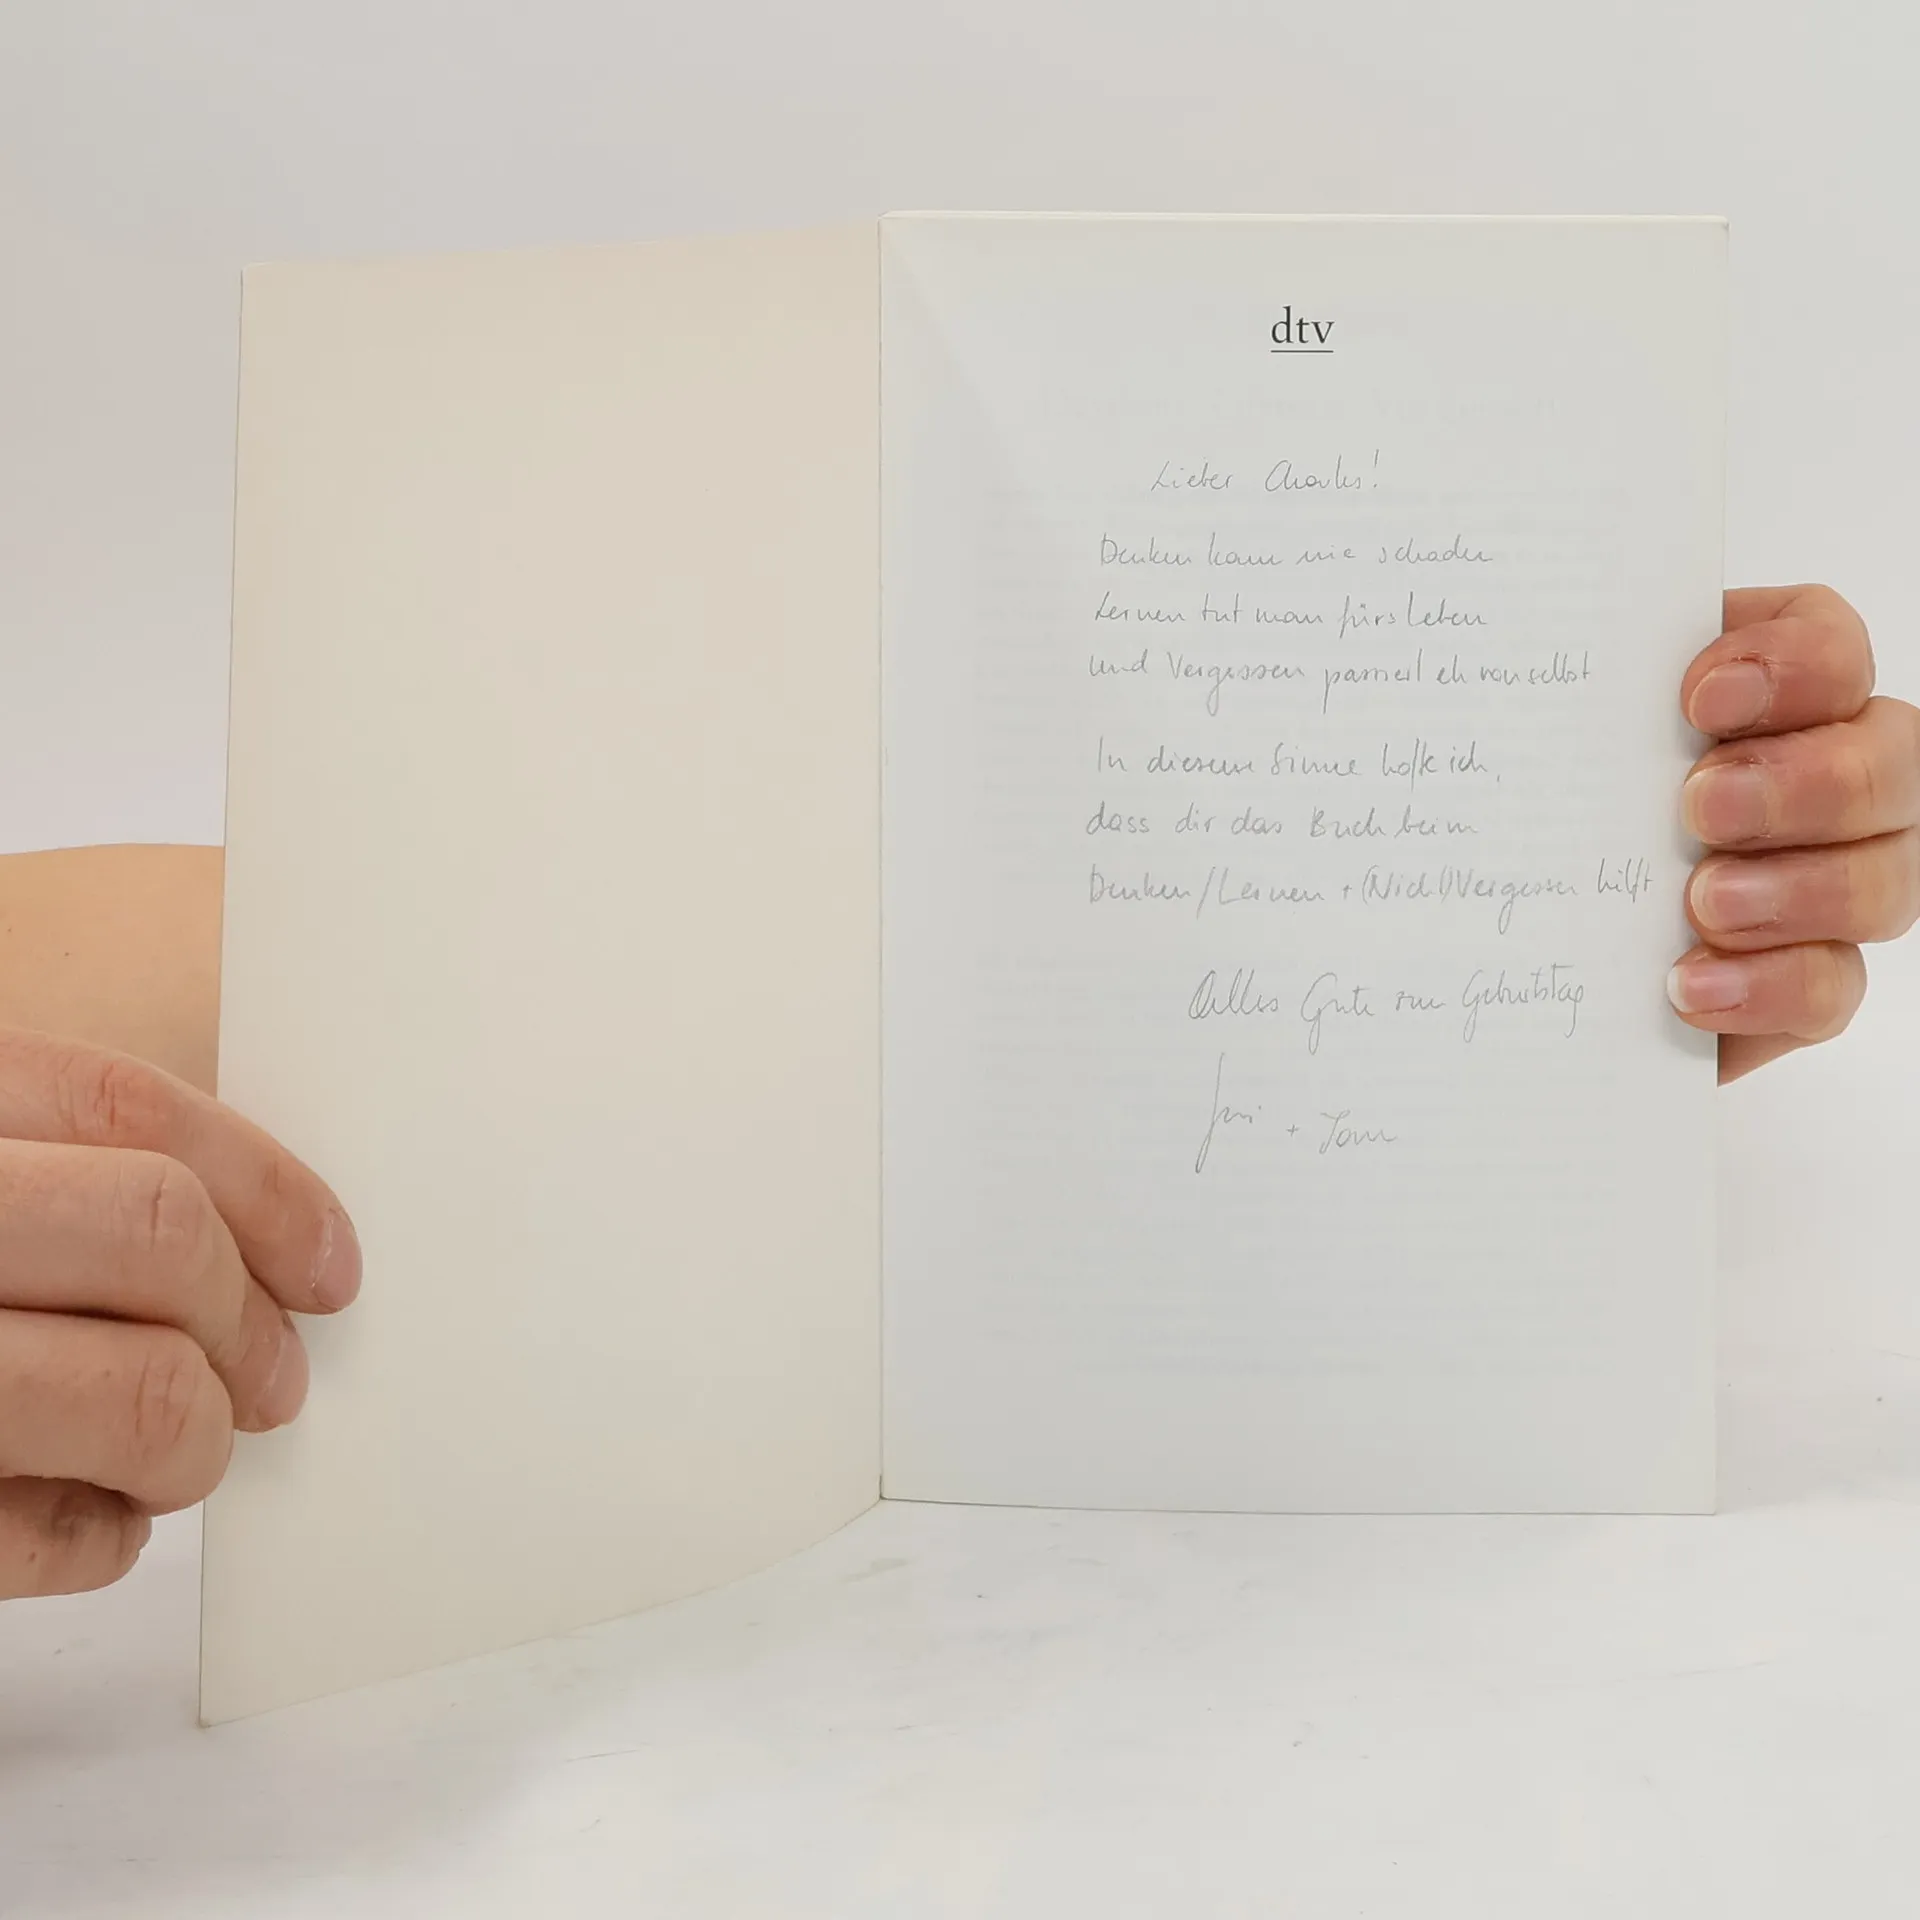 dtv
Lieber Charles!
Denken kann nie schaden
Lernen tut man fürs Leben
und Vergessen passiert eh von selbst
In diesem Sinne hoffe ich,
dass dir das Buch beim
Denken/Lernen + (Nicht)Vergessen hilft
Alles Gute zum Geburtstag
+ Tom